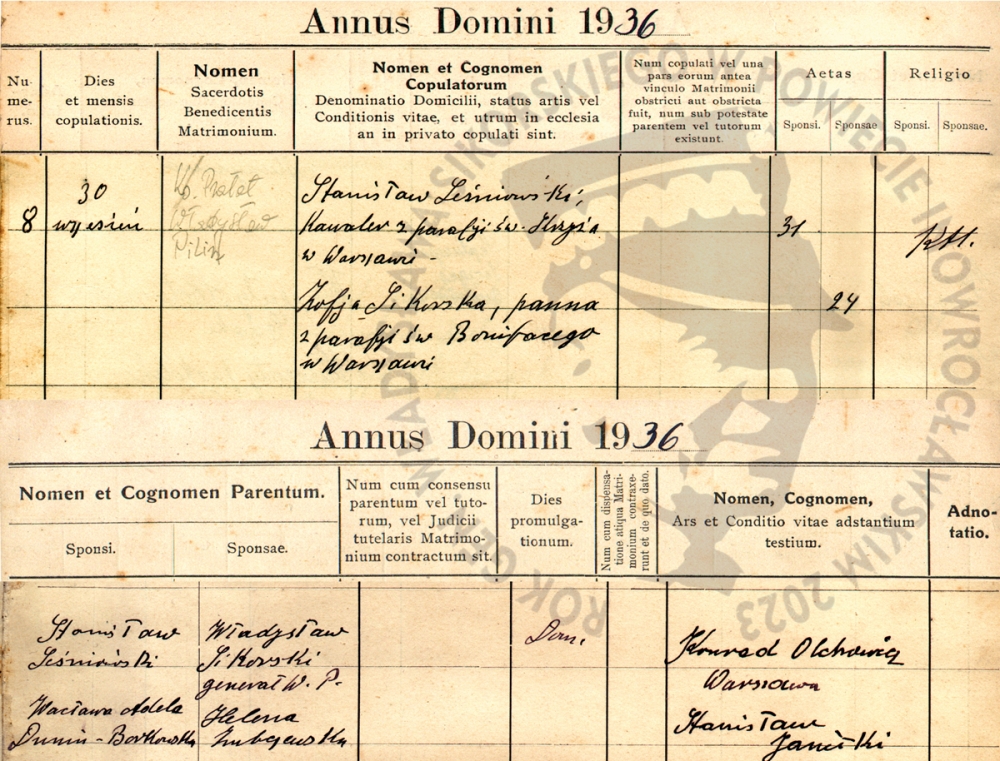 Annus Domini 1936
Nu-
me-
rus.
Dies
et mensis
copulationis.
Nomen
Sacerdotis
Benedicentis
Matrimonium.
Nomen et Cognomen
Copulatorum
Denominatio Domicilii, status artis vel
Conditionis vitae, et utrum in ecclesia
an in privato copulati sint.
Num copulati vel una
pars eorum antea
vinculo Matrimonii
obstricti aut obstricta
fuit, num sub potestate
parentem vel tutorum
existunt.
Aetas
Sponsi.
Sponsae
Religio
Sponsi.
Sponsae.
8
30
wrzesień
Ks. Prałat
Władysław
Stanisław Leśniowski,
Kawaler z parafji św. Krzyża
w Warszawie -
31
Zofja Sikorska, panna
z parafji św Bonifacego
w Warszawie
24
Annus Domini 1936
Nomen et Cognomen Parentum.
Sponsi.
Sponsae.
Num cum consensu
parentum vel tuto-
rum, vel Judicii
tutelaris Matrimo-
nium contractum sit.
Dies
promulga-
tionum.
Num cum dispensa-
tione atiqua Matri-
monium contraxe-
runt et de quo dato.
Nomen, Cognomen,
Ars et Conditio vitae adstantium
testium.
Adno-
tatio.
Stanisław
Leśniowski
Wacława Adela
Dunin-Borkowska
Władysław
Sikorski
generał W. P.
Helena
Zubczewska
Konrad Olchowicz
Warszawa
Stanisław
Janicki
ROK GEN. WŁADYSŁAWA SIKORSKIEGO W POWIECIE INOWROCŁAWSKIM 2023